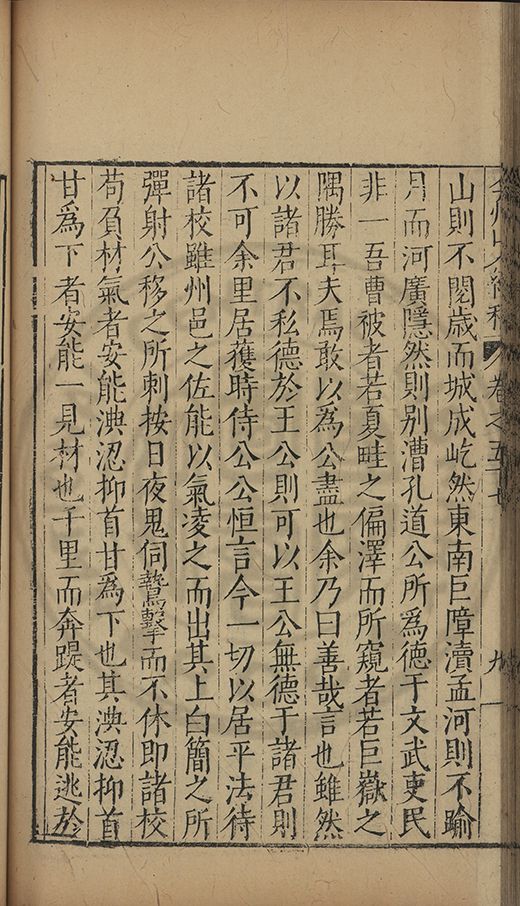 山人續稿 卷之五十七 九
山則不閱歲而城成屹然東南巨障瀆孟河則不踰
月而河廣隱然則别漕孔道公所為德于文武吏民
非一吾曹被者若夏畦之偏澤而所窺者若巨嶽之
隅勝耳夫焉敢以為公盡也余乃曰善哉言也雖然
以諸君不私德於王公則可以王公無德于諸君則
不可余里居蒦時侍公公恒言今一切以居平法待
諸校雖州邑之佐能以氣凌之而出其上白簡之所
彈射公移之所刺按日夜鬼伺鷙擊而不休即諸校
苟負材氣者安能淟涊抑首甘為下也其淟涊抑首
甘為下者安能一見材也千里而奔踶者安能逃於